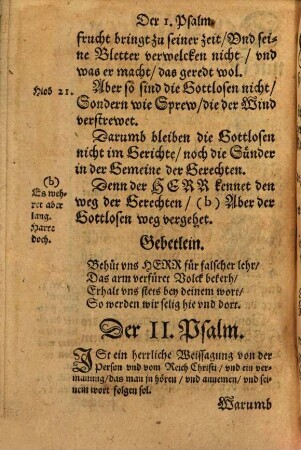 Der 1. Psalm.
frucht bringt zu seiner zeit / Vnd sei-
ne Bletter verwelcken nicht / vnd
was er macht / das geredt wol.
Hiob 21.
Aber so sind die Gottlosen nicht /
Sondern wie Sprew / die der Wind
verstrewet.
Darumb bleiben die Gottlosen
nicht im Gerichte / noch die Sünder
in der Gemeine der Gerechten.
(b)
Es weh-
ret aber
lang.
Harre
doch.
Denn der HERR kennet den
weg der Gerechten / (b) Aber der
Gottlosen weg vergehet.
Gebetlein.
Behüt vns HERR für falscher lehr /
Das arm verfüret Volck bekerh /
Erhalt vns stets bey deinem wort /
So werden wir selig hie vnd dort.
Der II. Psalm.
ISt ein herrliche Weissagung von der
Person vnd vom Reich Christi / vnd ein ver-
manung / das man jn hören / vnd annemen / vnd sei-
nem wort folgen sol.
Warumb